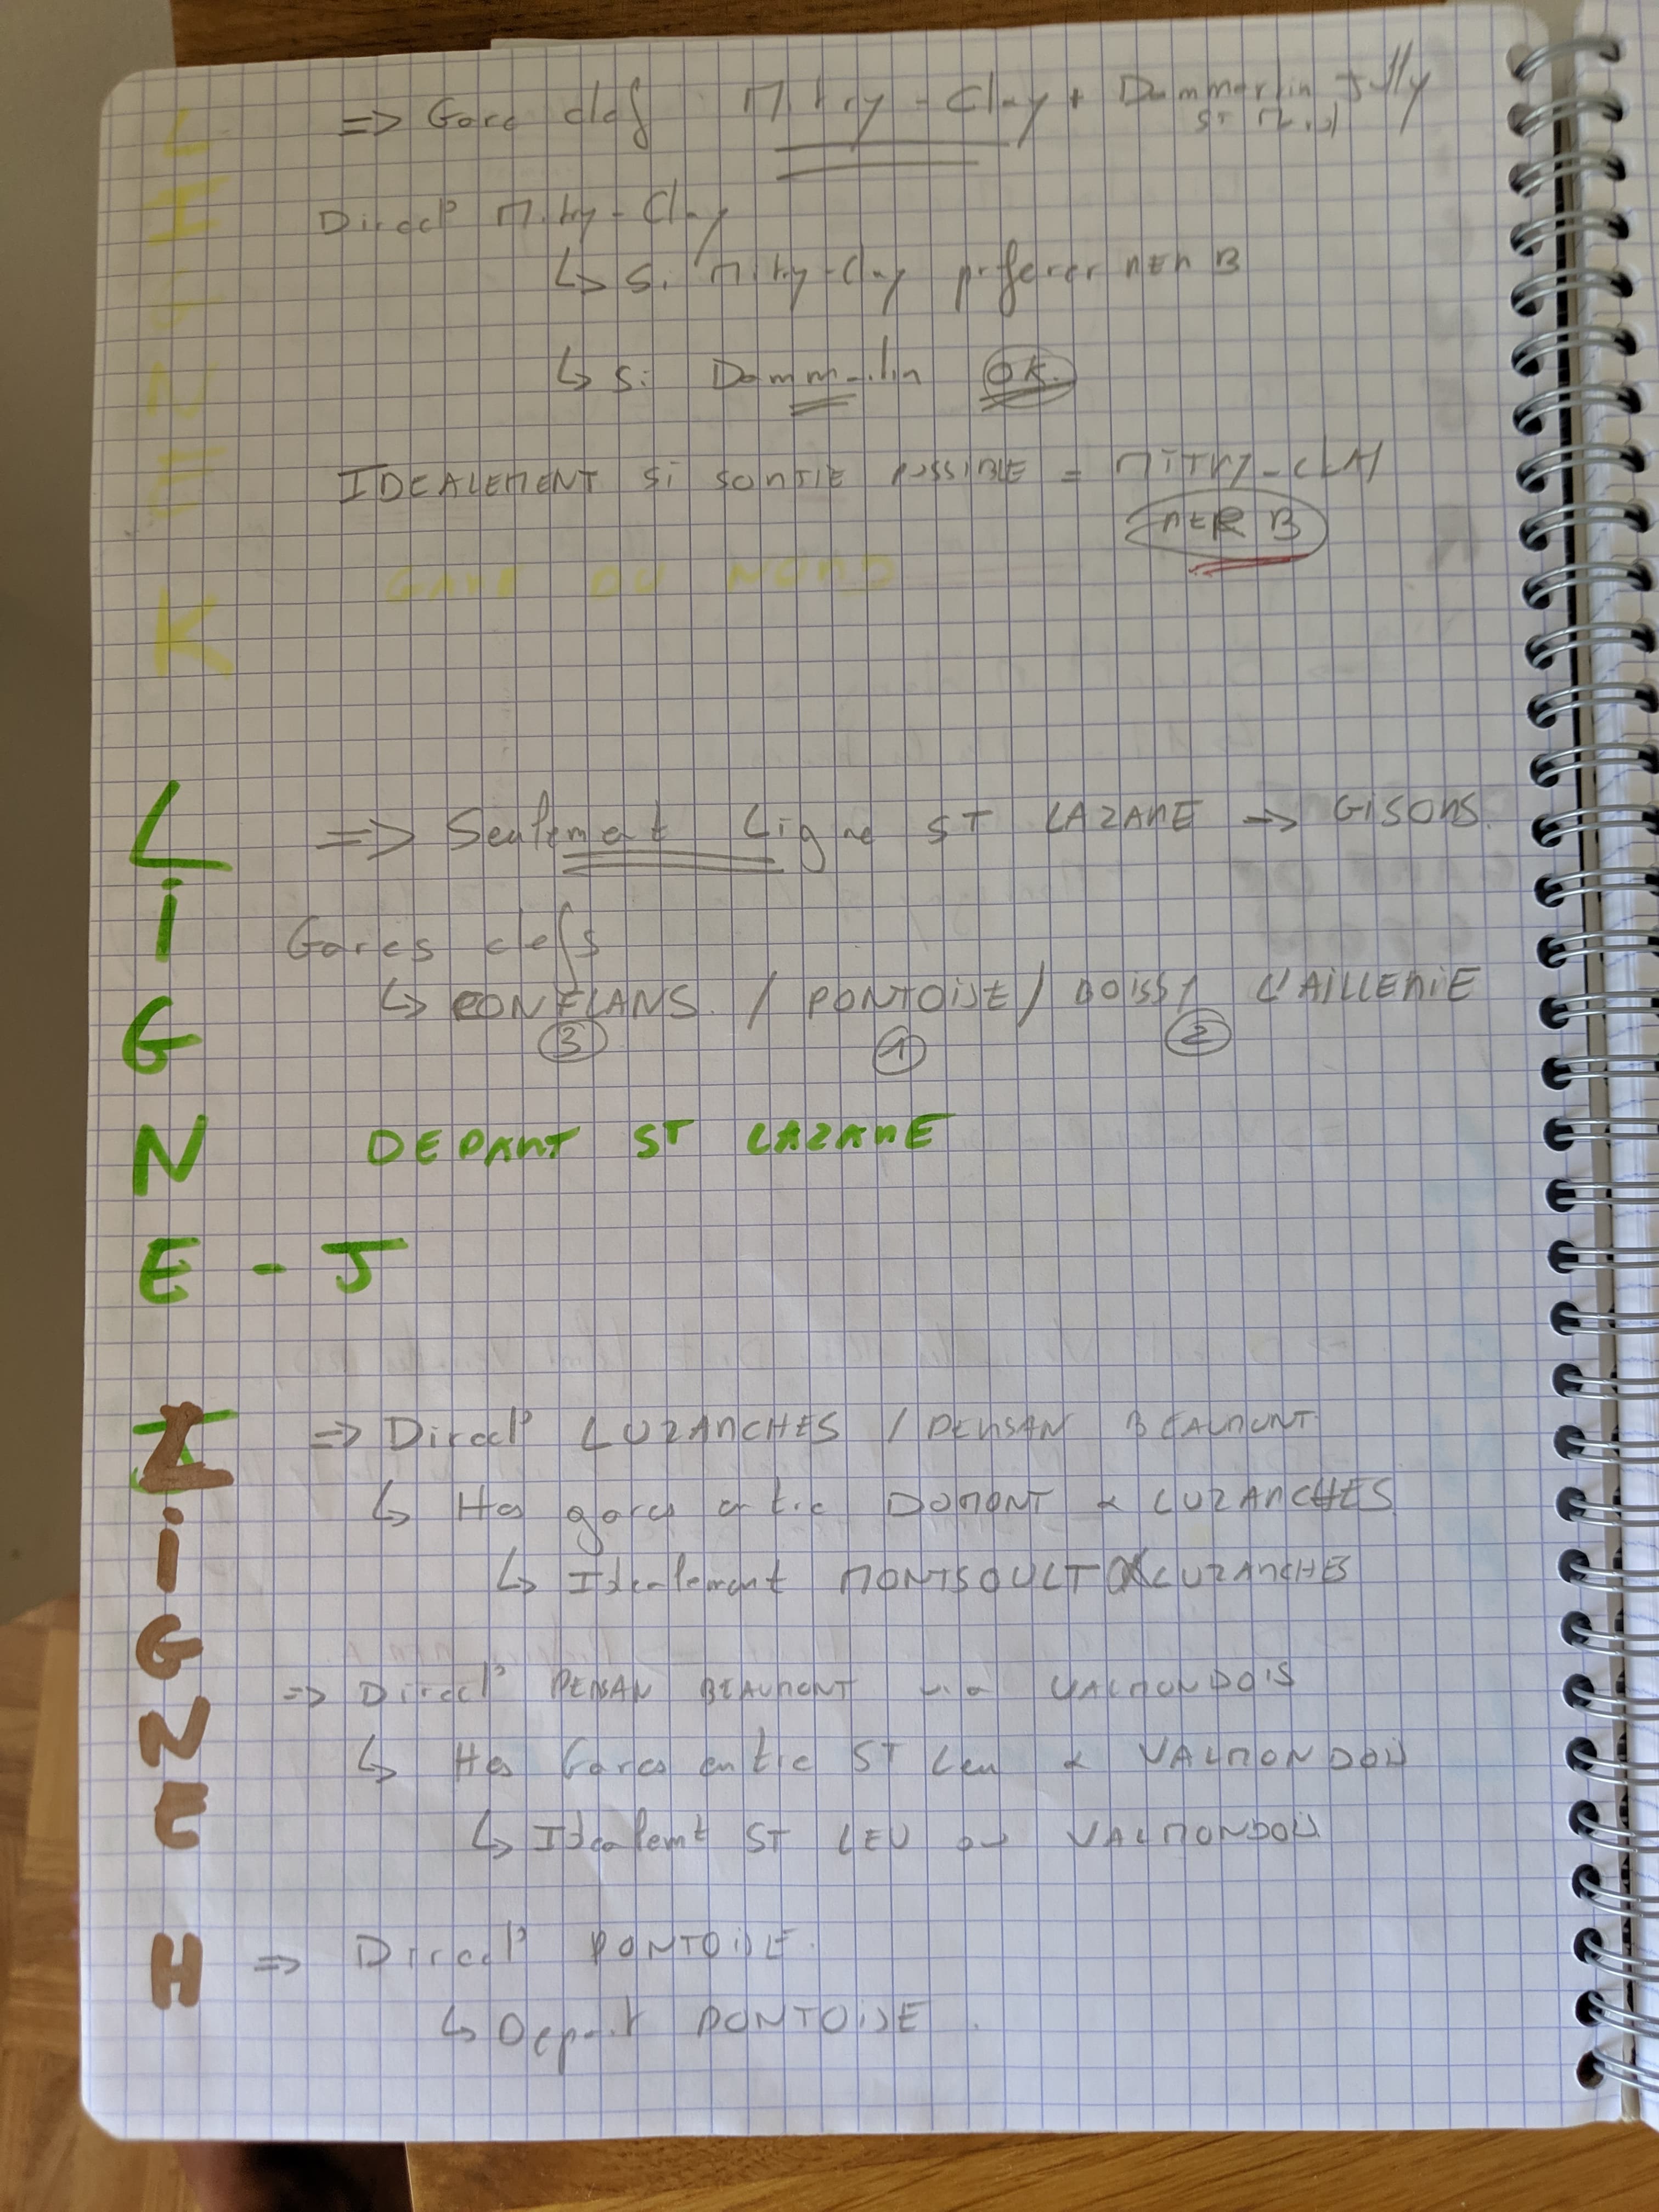 LIGNE K
=> Gare clef Mitry-Clay + Dammartin Jully
St Mard
Direct° Mitry-Clay
↳ Si Mitry-Clay préferer RER B
↳ Si Dammartin OK.
IDEALEMENT Si SORTIE POSSIBLE = MITRY-CLAY
RER B
GARE DU NORD
LIGNE - J
=> Seulement Ligne ST LAZARE -> GISORS.
Gares clefs
↳ CONFLANS. / PONTOISE / BOISSY L'AILLERIE
3 1 2
DEPART ST LAZARE
LIGNE H
=> Direct° LUZARCHES / PERSAN BEAUMONT
↳ Hes gares entre DOMONT & LUZARCHES
↳ Idealement MONTSOULT & LUZARCHES
=> Direct° PERSAN BEAUMONT via VALMONDOIS
↳ Hes Gares entre ST Leu & VALMONDOIS
↳ Idealemt ST LEU ou VALMONDOIS
=> Direct° PONTOISE.
↳ Depart PONTOISE.